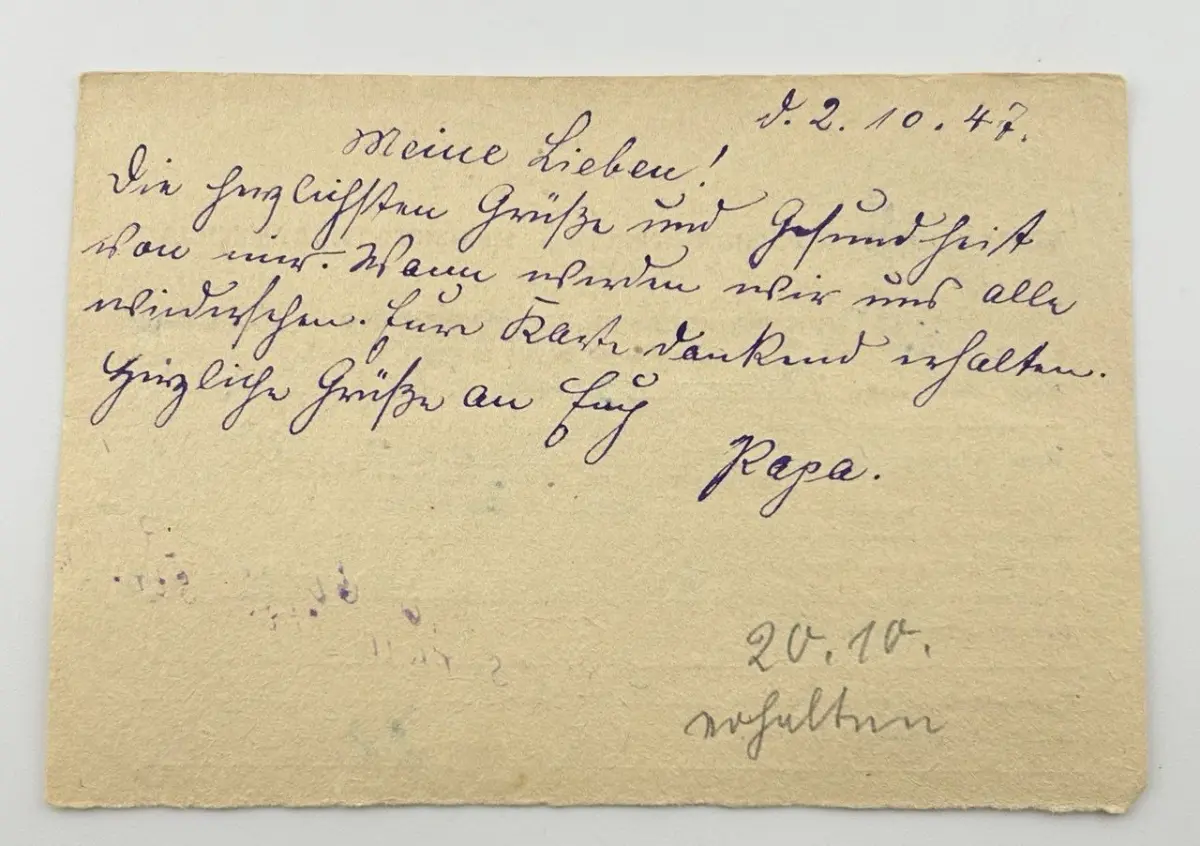 d. 2. 10. 47.
Meine Lieben!
Die herzlichsten Grüße und Gesundheit
von mir. Wann werden wir uns alle
wiedersehen. Eure Karte dankend erhalten.
Herzliche Grüße an Euch
Papa.
20. 10.
erhalten